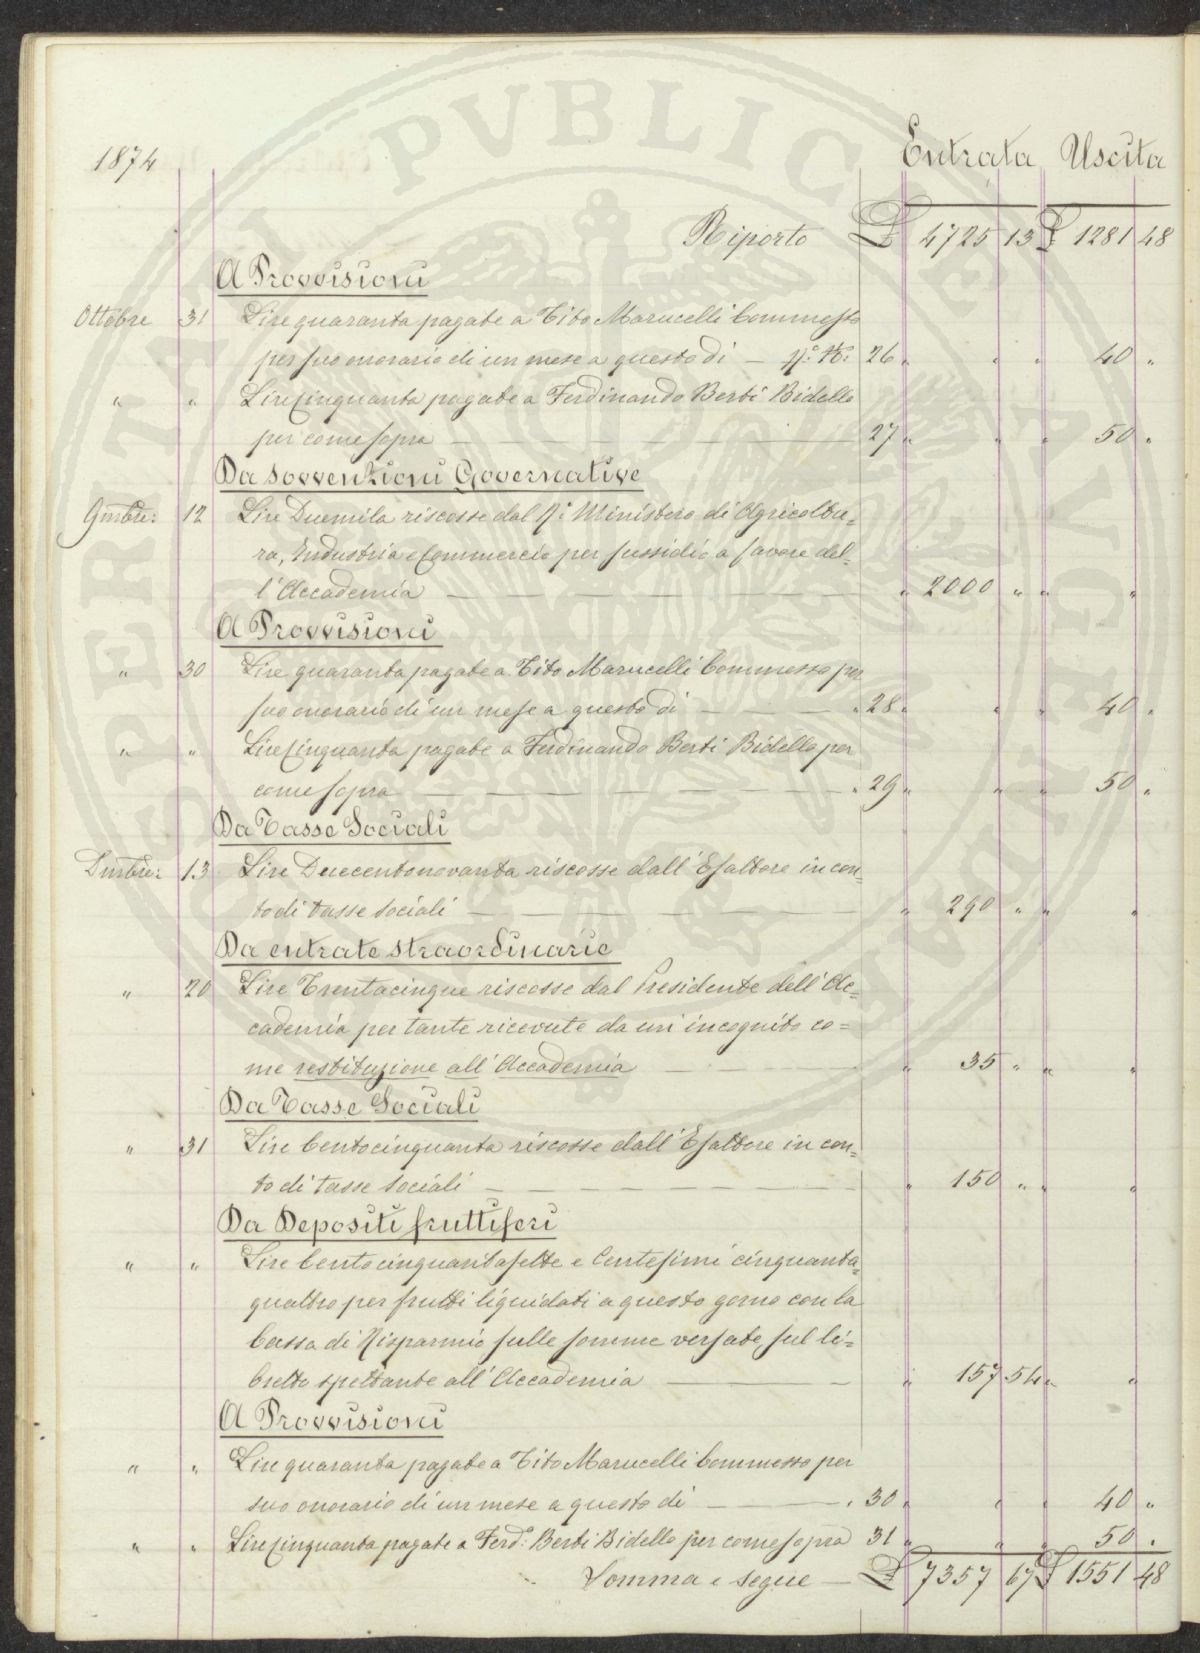 1874 Entrata Uscita
Riporto £ 4725 13 £ 1281 48
A Provvisioni
Ottobre 31 Lire quaranta pagate a Tito Marucelli Commesso
per suo onorario di un mese a questo dì — 26 " " " 40 "
" " Lire Cinquanta pagate a Ferdinando Berti Bidello
per come sopra — 27 " " " 50 "
Da Sovvenzioni Governative
9mbre: 12 Lire Duemila riscosse dal R.º Ministero di Agricoltu=
ra, Industria e Commercio per sussidio a favore del=
l'Accademia — " 2000 " " "
A Provvisioni
" 30 Lire quaranta pagate a Tito Marucelli Commesso per
suo onorario di un mese a questo dì — " 28 " " " 40 "
" " Lire Cinquanta pagate a Ferdinando Berti Bidello per
come sopra — " 29 " " " 50 "
Da Tasse Sociali
Dmbre: 13 Lire Duecentonovanta riscosse dall'Esattore in con=
to di tasse sociali — " 290 " " "
Da entrate straordinarie
" 20 Lire Trentacinque riscosse dal Presidente dell'Ac=
cademia per tante ricevute da un'incognito co=
me restituzione all'Accademia — " 35 " " "
Da Tasse Sociali
" 31 Lire Centocinquanta riscosse dall'Esattore in con=
to di tasse sociali — " 150 " " "
Da Depositi fruttiferi
" " Lire Centocinquantasette e Centesimi cinquanta=
quattro per frutti liquidati a questo gorno con la
Cassa di Risparmio sulle somme versate, sul li=
bretto spettante all'Accademia — " 157 54 " "
A Provvisioni
" " Lire quaranta pagate a Tito Marucelli Commesso per
suo onorario di un mese a questo dì — " 30 " " " 40 "
" " Lire Cinquanta pagate a Ferd.º Berti Bidello per come sopra 31 " " " 50 "
Somma e segue — £ 7357 67 £ 1551 48
PROSPERITATI PVBLICAE AVGENDAE